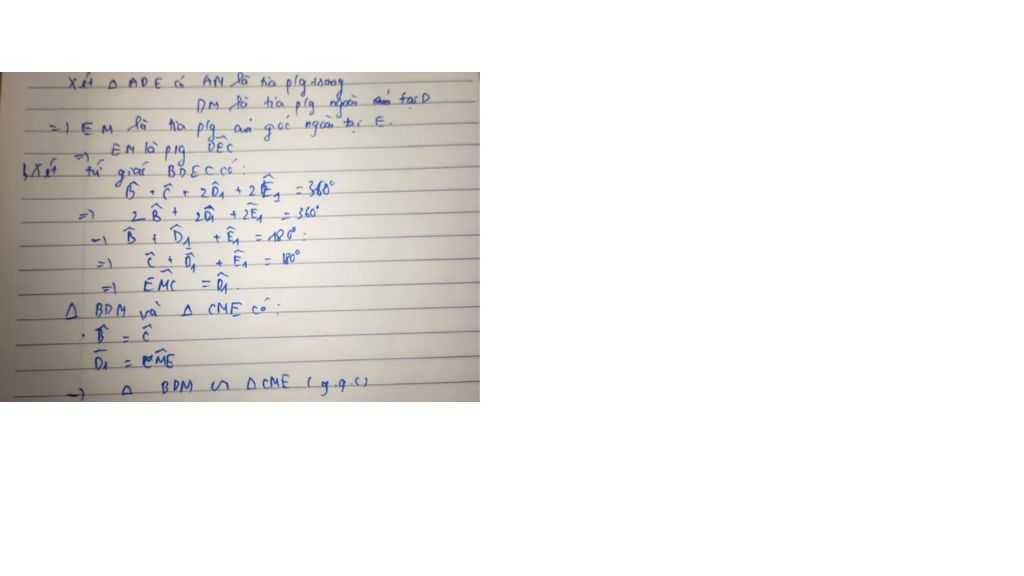 Xét Δ ADE có AM là tia p/g trong
DM là tia p/g ngoài tại D
=) EM là tia p/g của góc ngoài tại E.
=) EM là p/g DÊC
b, Xét tứ giác BDEC có:
B̂ + Ĉ + 2D̂₁ + 2Ê₁ = 360°
=) 2B̂ + 2D̂₁ + 2Ê₁ = 360°
=) B̂ + D̂₁ + Ê₁ = 180°:
=) Ĉ + D̂₁ + Ê₁ = 180°
=) EM̂C = D̂₁.
Δ BDM và Δ CME có:
B̂ = Ĉ
D̂₁ = CM̂E
=) Δ BDM ∽ Δ CME (g.g.c)